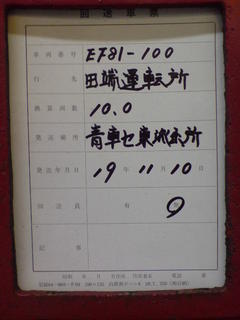 回送車票
車両番号 EF81-100
行先 田端運転所
換算両数 10.0
発送箇所 青車セ東派出所
発送年月日 19年11月10日
回送員 有 無
記事